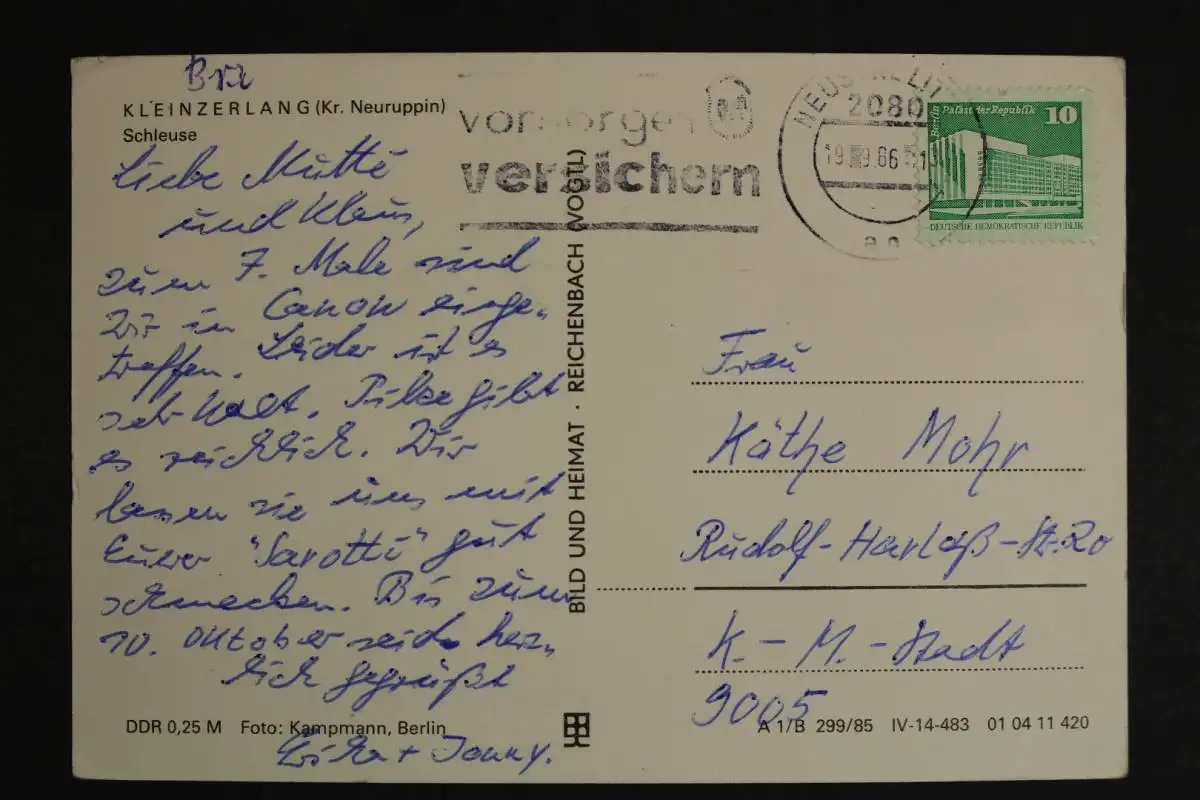 KLEINZERLANG (Kr. Neuruppin)
Schleuse
Liebe Mutti
und Klaus,
zum 7. Male sind
Wir in Canow einge-
troffen. Leider ist es
sehr kalt. Pilze gibt
es reichlich. Wir
lassen sie uns mit
Eurer "Sarotti" gut
schmecken. Bis zum
10. Oktober seid herz-
lich gegrüßt
DDR 0,25 M Foto: Kampmann, Berlin
Erika + Jonny.
BILD UND HEIMAT · REICHENBACH (VOGTL)
vorsorgen
versichern
NEUSTRELITZ
2080
19.9.86
Berlin Palast der Republik 10
DEUTSCHE DEMOKRATISCHE REPUBLIK
Frau
Käthe Mohr
Rudolf-Harlaß-Str. 20
K.-M.-Stadt
9005
A 1/B 299/85 IV-14-483 01 04 11 420